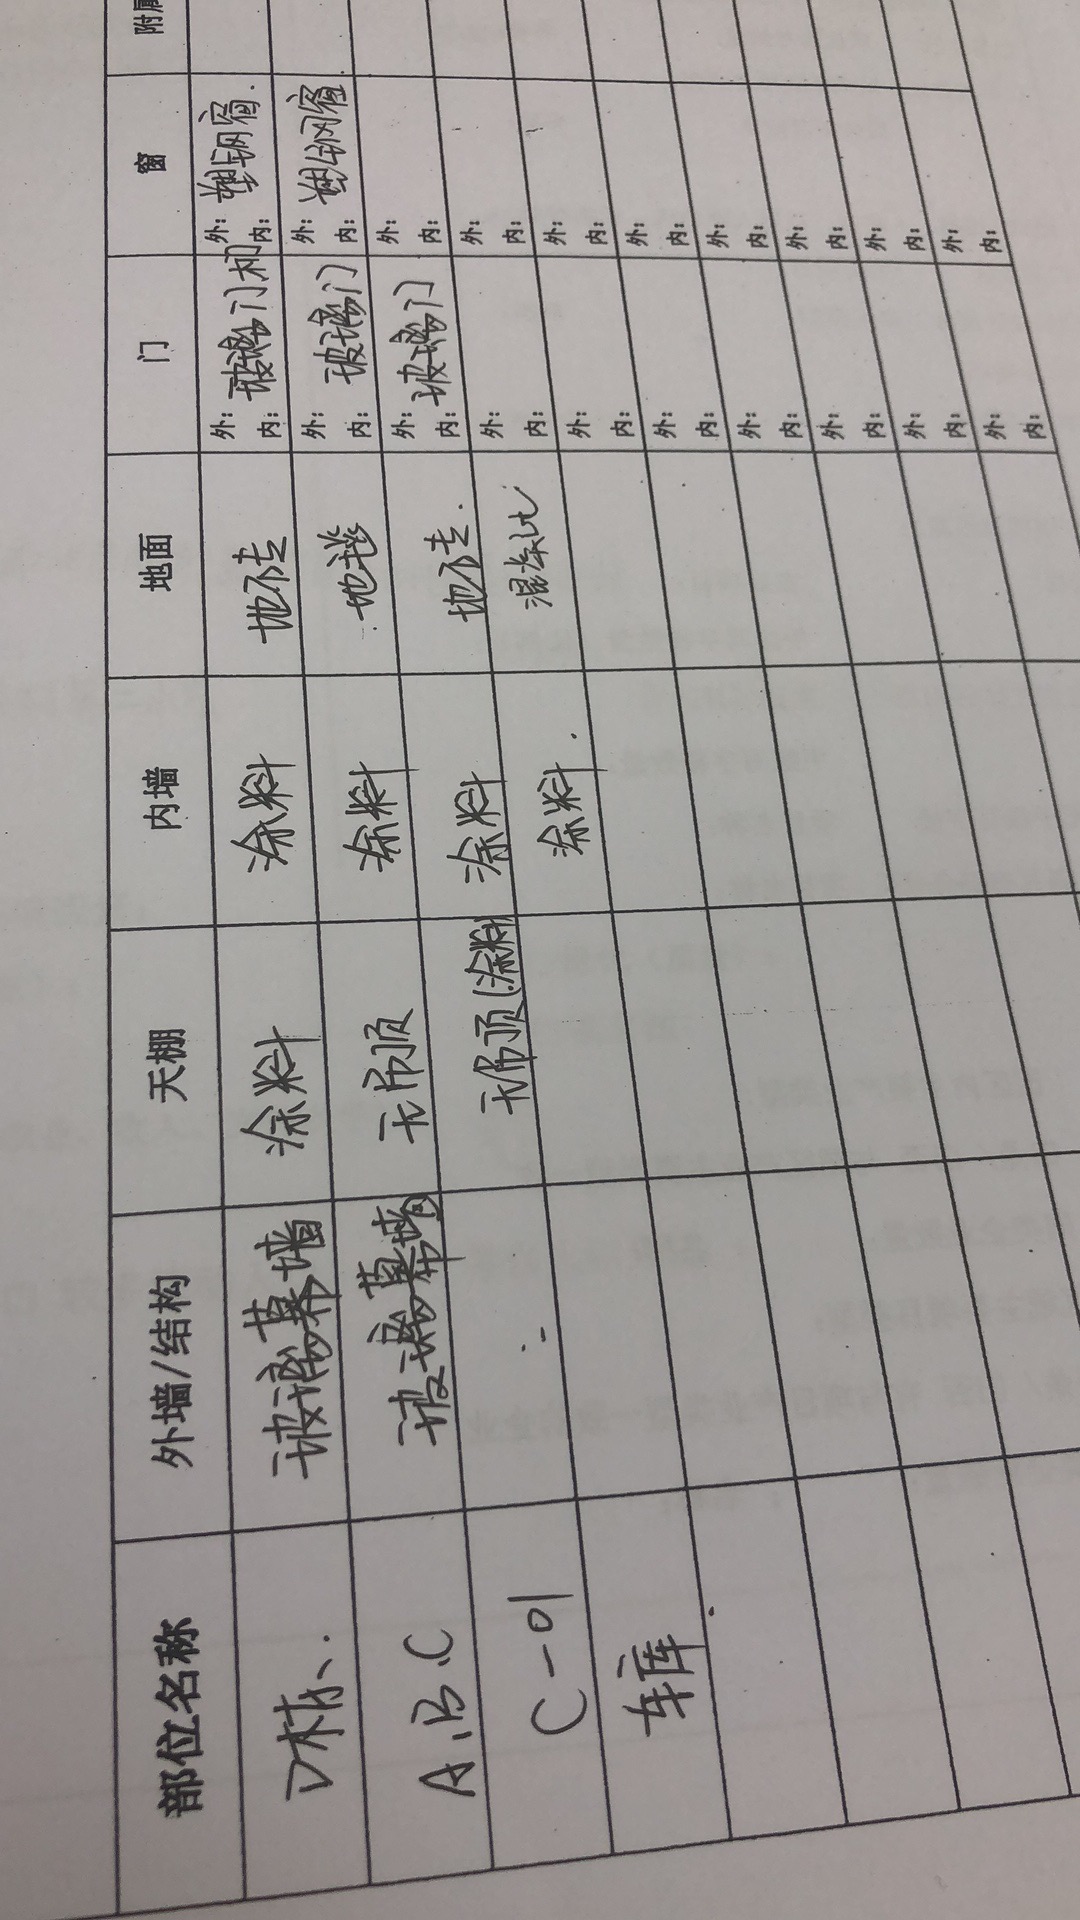 部位名称 外墙/结构 天棚 内墙 地面 门 窗 附属
D栋 玻璃幕墙 涂料 涂料 地砖 外: 玻璃门 内: 外: 塑钢窗 内:
A.B.C 玻璃幕墙 无吊顶 涂料 地毯 外: 玻璃门 内: 外: 塑钢窗 内:
C-01 无吊顶(涂料 涂料 地砖 外: 玻璃门 内: 外: 内:
车库 涂料 混凝土 外: 内: 外: 内:
外: 内: 外: 内:
外: 内: 外: 内:
外: 内: 外: 内:
外: 内: 外: 内:
外: 内: 外: 内:
外: 内: 外: 内: